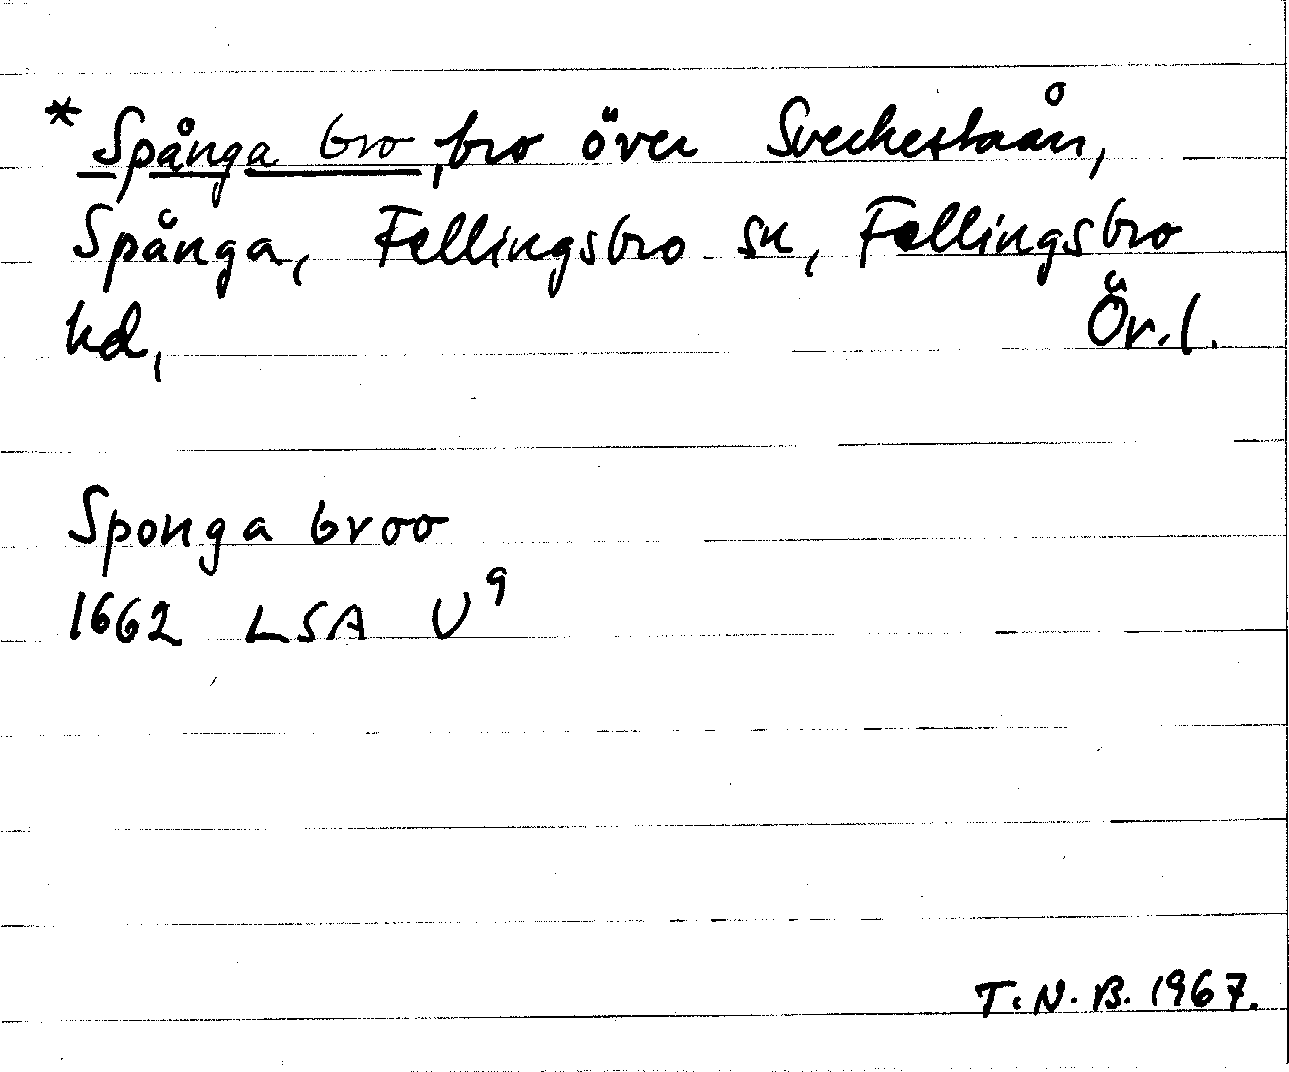 * Spånga bro, bro över Sveckestaån,
Spånga, Fellingsbro sn, Fellingsbro
hd, Ör.l.
Sponga broo
1662 LSA U⁹
T.N.B. 1967.